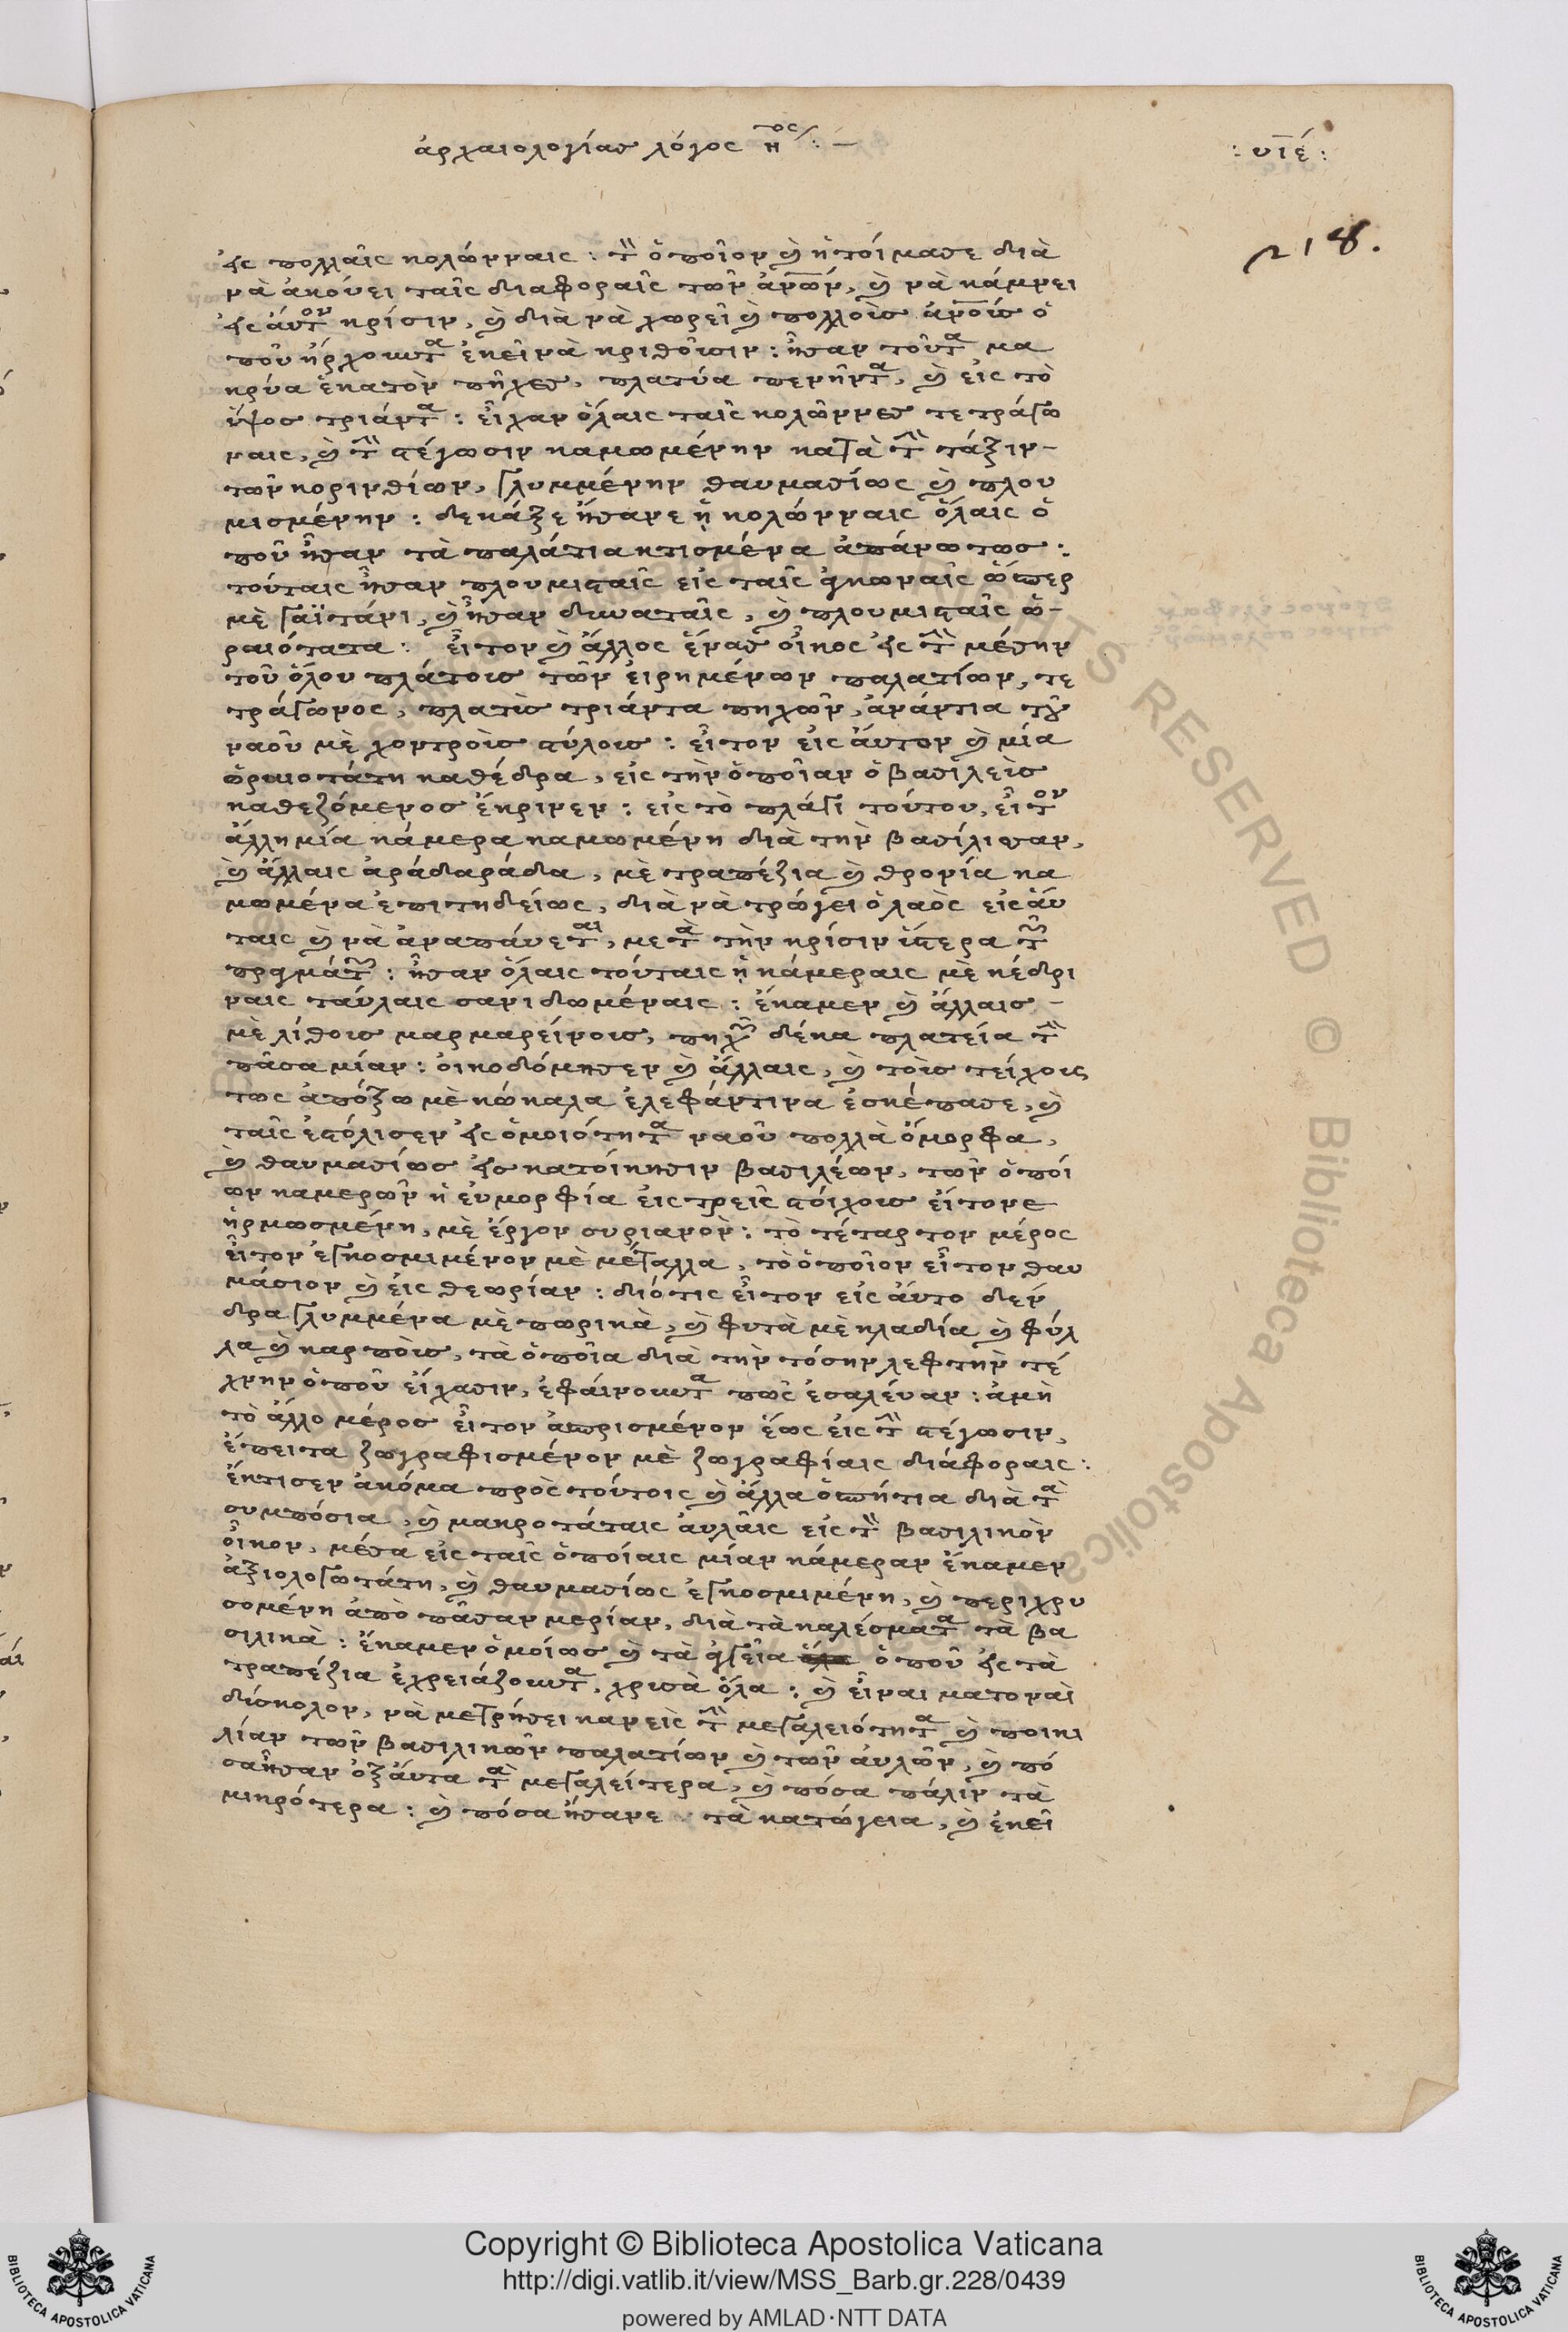 ἀρχαιολογίας λόγος η^ος :—
: υιέ :
218.
εἰς πολλαῖς κολώνναις : τὸ ὁποῖον καὶ ἡτοίμασε διὰ
νὰ ἀκούει ταῖς διαφοραῖς τῶν ἀνῶν, καὶ νὰ κάμνει
εἰς αὐτὸν κρίσιν, καὶ διὰ νὰ χωρεῖ καὶ πολλοὺς ἀνοὺς ὁ
ποῦ ἤρχουντα ἐκεῖ νὰ κριθοῦσιν : ἦσαν τοῦτα μα
κρύα ἑκατὸν πῆχες, πλατύα πενῆντα, καὶ εἰς τὸ
ὕψος τριάντα : εἶχαν ὅλαις ταῖς κολῶννες τετράγω
ναις, καὶ τὴν στέγωσιν καμωμένην κατὰ τὴν τάξιν –
τῶν κορινθίων, γλυμμένην θαυμασίως καὶ πλου
μισμένην : δεκάξε ἤσανε ᾑ κολώνναις ὅλαις ὁ
ποῦ ἦσαν τὰ παλάτια κτισμένα ἀπάνω τως :
τούταις ἦσαν πλουμισταῖς εἰς ταῖς γκωναῖς ὥσπερ
μὲ γαϊτάνι, καὶ ἦσαν δυναταῖς, καὶ πλουμισταῖς ὡ–
ραιότατα : εἶτον καὶ ἄλλος ἕνας οἶκος εἰς τὴν μέσην
τοῦ ὅλου πλάτους τῶν εἰρημένων παλατίων, τε
τράγωνος, πλατὺς τριάντα πηχῶν, ἀνάντια τοῦ
ναοῦ μὲ χοντροὺς στύλους : εἶτον εἰς αὐτὸν καὶ μία
ὡραιοτάτη καθέδρα, εἰς τὴν ὁποῖαν ὁ βασιλεὺς
καθεζόμενος ἔκρινεν : εἰς τὸ πλάγι τούτου, εἶτον
ἄλλη μία κάμερα καμωμένη διὰ τὴν βασίλισσαν,
καὶ ἄλλαις ἀράδαράδα, μὲ τραπέζια καὶ θρονία κα
μωμένα ἐπιτηδείως, διὰ νὰ τρώγει ὁ λαὸς εἰς αὔ
ταις καὶ νὰ ἀναπαύεται, μετὰ τὴν κρίσιν ὕστερα τῶν
πραγμάτων : ἦσαν ὅλαις τούταις ᾑ κάμεραις μὲ κέδρι
ναις ταύλαις σανιδωμέναις : ἔκαμεν καὶ ἄλλαις –
μὲ λίθους μαρμαρείνους, πηχῶν δέκα πλατεία τὴν
πᾶσα μίαν : οἰκοδόμησεν καὶ ἄλλαις, καὶ τοὺς τείχους
τως ἀπόξω μὲ κώκαλα ἐλεφάντινα ἐσκέπασε, καὶ
ταῖς ἐστόλισεν εἰς ὁμοιότητα ναοῦ πολλὰ ὄμορφα,
καὶ θαυμασίως εἰς κατοίκησιν βασιλέων, τῶν ὁποί
ων καμερῶν ἡ εὐμορφία εἰς τρεῖς στοίχους εἴτονε
ἡρμωσμένη, μὲ ἔργον συριανὸν : τὸ τέταρτον μέρος
εἶτον ἐγκοσμιμένον μὲ μέταλλα, τὸ ὁποῖον εἶτον θαυ
μάσιον καὶ εἰς θεωρίαν : διότις εἶτον εἰς αὐτο δέν
δρα γλυμμένα μὲ πωρικὰ, καὶ φυτὰ μὲ κλαδία καὶ φύλ
λα καὶ καρποὺς, τὰ ὁποῖα διὰ τὴν τόσην λεφτὴν τέ
χνην ὁποῦ εἴχασιν, ἐφαίνουντα πῶς ἐσαλέυαν : ἀμὴ
τὸ ἄλλο μέρος εἶτον ἀπωρισμένον ἕως εἰς τὴν στέγωσιν,
ἔπειτα ζωγραφισμένον μὲ ζωγραφίαις διάφοραις :
ἔκτισεν ἀκόμα πρὸς τούτοις καὶ ἄλλα ὁσπήτια διὰ τὰ
συμπόσια, καὶ μακροτάταις αὐλαῖς εἰς τὸν βασιλικὸν
οἶκον, μέσα εἰς ταῖς ὁποίαις μίαν κάμεραν ἔκαμεν
ἀξιολογωτάτη, καὶ θαυμασίως ἐγκοσμιμένη, καὶ περιχρυ
σομένη ἀπὸ πᾶσαν μερίαν, διὰ τὰ καλέσματα τὰ βα
σιλικὰ : ἔκαμεν ὁμοίως καὶ τὰ ἀγγεῖα ὁποῦ εἰς τὰ
τραπέζια ἐχρειάζουντα, χρισὰ ὅλα : καὶ εἶναι ματοναὶ
δύσκολον, νὰ μετρήσει κανεὶς τὴν μεγαλειότητα καὶ ποικι
λίαν τῶν βασιλικῶν παλατίων καὶ τῶν αὐλῶν, καὶ πό
σα ἦσαν ὀξ αὐτὰ τὰ μεγαλείτερα, καὶ πόσα πάλιν τὰ
μικρότερα : καὶ πόσα ἤσανε τὰ κατώγεια, καὶ ἐκεῖ
Copyright © Biblioteca Apostolica Vaticana
http://digi.vatlib.it/view/MSS_Barb.gr.228/0439
powered by AMLAD·NTT DATA